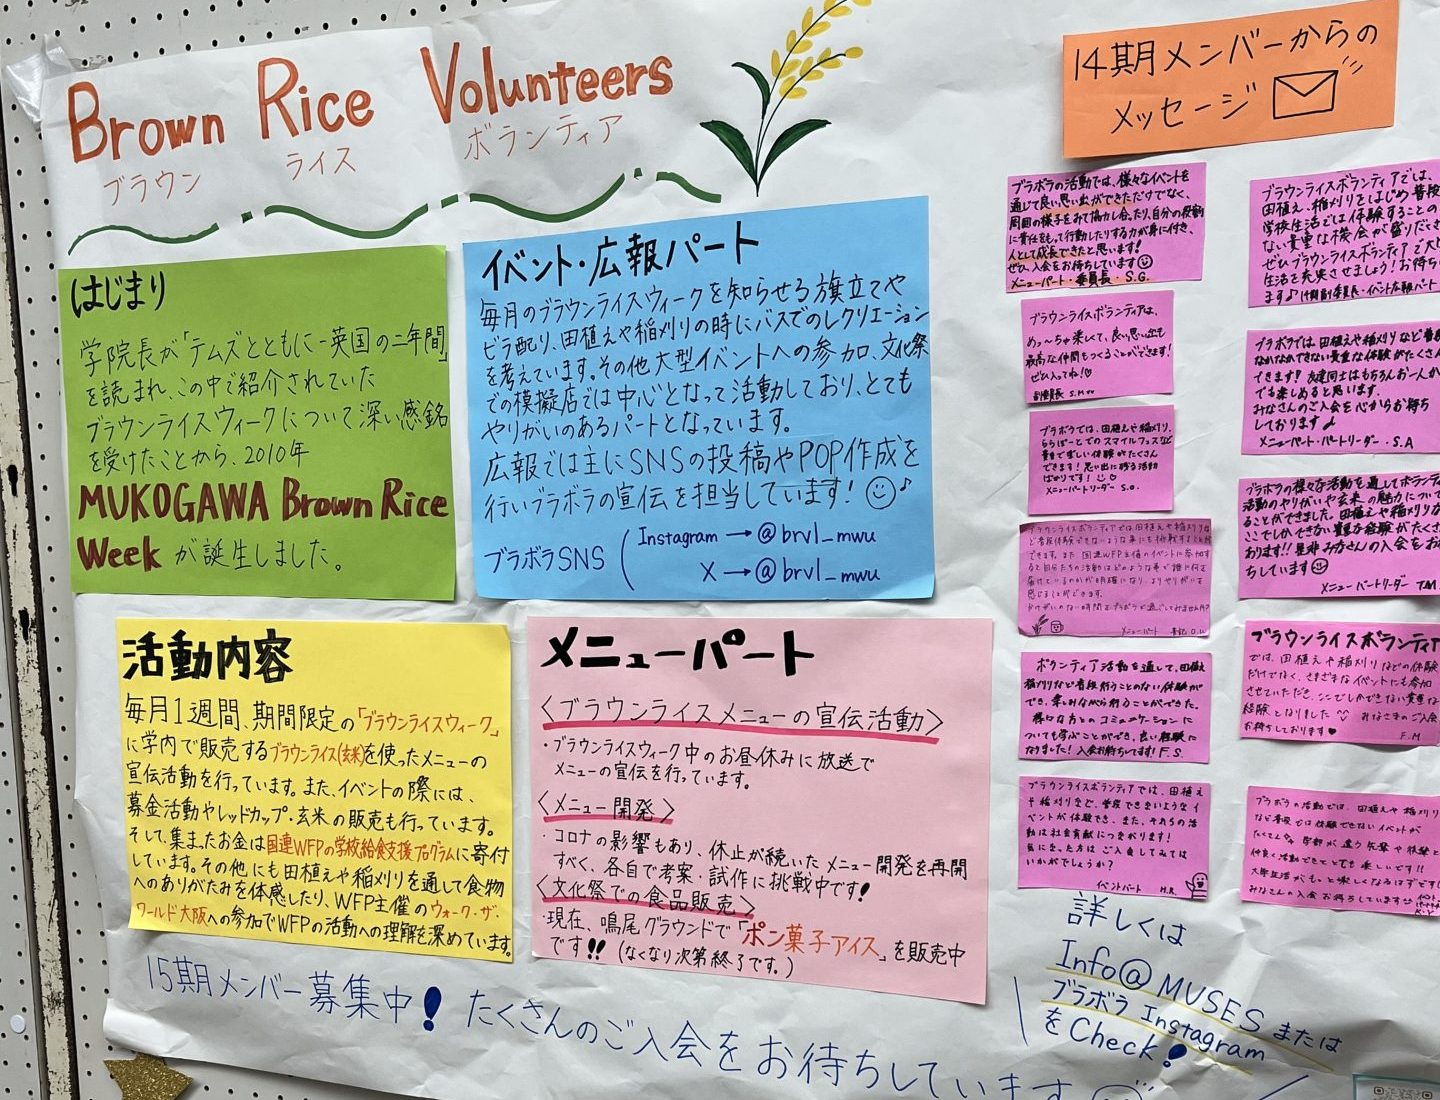 Brown Rice Volunteers
ブラウン ライス ボランティア
はじまり
学院長が「テムズとともに-英国の二年間」
を読まれ、この中で紹介されていた
ブラウンライスウィークについて深い感銘
を受けたことから、2010年
MUKOGAWA Brown Rice
Week が誕生しました。
イベント・広報パート
毎月のブラウンライスウィークを知らせる旗立てや
ビラ配り、田植えや稲刈りの時にバスでのレクリエーション
を考えています。その他大型イベントへの参加、文化祭
での模擬店では中心となって活動しており、とても
やりがいのあるパートとなっています。
広報では主にSNSの投稿やPOP作成を
行いブラボラの宣伝を担当しています!
ブラボラSNS
Instagram → @brvl_mwu
X → @brvl_mwu
活動内容
毎月1週間、期間限定の「ブラウンライスウィーク」
に学内で販売するブラウンライス(玄米)を使ったメニューの
宣伝活動を行っています。また、イベントの際には、
募金活動やレッドカップ・玄米の販売も行っています。
そして、集まったお金は国連WFPの学校給食支援プログラムに寄付
しています。その他にも田植えや稲刈りを通して食物
へのありがたみを体感したり、WFP主催のウォーク・ザ・
ワールド大阪への参加でWFPの活動への理解を深めています。
メニューパート
〈ブラウンライスメニューの宣伝活動〉
・ブラウンライスウィーク中のお昼休みに放送で
メニューの宣伝を行っています。
〈メニュー開発〉
・コロナの影響もあり、休止が続いたメニュー開発を再開
すべく、各自で考案・試作に挑戦中です!
〈文化祭での食品販売〉
・現在、鳴尾グラウンドで「ポン菓子アイス」を販売中
です!! (なくなり次第終了です。)
15期メンバー募集中! たくさんのご入会をお待ちしています
14期メンバーからの
メッセージ
ブラボラの活動では、様々なイベントを
通じて良い思い出ができただけでなく、
周囲の様子をみて協力し合ったり、自分の役割
に責任をもって行動したりする力が身に付き、
人として成長できたと思います!
ぜひ入会をお待ちしています
メニューパート・委員長・S.G.
ブラウンライスボランティアは、
めっ〜ちゃ楽しくて、良い思い出も
最高な仲間もつくることができます!
ぜひ入ってね!♡
副委員長
ブラボラでは、田植えや稲刈り、
ららぽーとでのスマイルフェスなど
貴重で楽しい体験がたくさん
できます! 思い出に残る活動
ばかりです!
メニューパートリーダー S.O.
ブラウンライスボランティアでは田植えや稲刈りな
メニューパート
ボランティア活動を通して、田植え
稲刈りなど普段行うことのない体験が
でき、楽しみながら行うことができた。
様々な方とのコミュニケーションに
ついても学ぶことができ、良い経験に
なりました! 入会お待ちしてます! F.S.
ブラウンライスボランティアでは、田植え
や稲刈りなど、普段できないようなイ
ベントが体験でき、また、それらの活
動は社会貢献につながります!
気になった方はご入会してみては
いかがでしょうか?
イベントパート M.R.
ブラウンライスボランティアでは、
田植え、稲刈りをはじめ普段
学校生活では体験することの
ない貴重な機会が盛りださ
ぜひブラウンライスボランティアで大
生活を充実させましょう!お待ち
ます♪
ブラボラでは田植えや稲刈りなど普段
なかなかできない貴重な体験がたくさん
できます! 友達同士はもちろんお一人か
でも楽しめると思います。
みなさんのご入会を心からお待ち
しております♪
メニューパート・パートリーダー・S.A
ブラボラの様々な活動を通してボランティ
活動のやりがいや玄米の魅力について
ることができました。田植えや稲刈りな
ここでしかできない貴重な経験がたくさ
おります!! 是非みなさんの入会をお
ちしています
メニューパートリーダー T.M.
ブラウンライスボランティア
では、田植えや稲刈りなどの体験
だけでなく、さまざまなイベントにも参加
させていただき、ここでしかできない貴重な
経験となりました みなさまのご入会
お待ちしております♥
F.M
ブラボラの活動では、田植えや稲刈り
など普段では体験できないイベントが
たくさん 学部が違う先輩や後輩と
仲良く活動できてとても楽しいです!!
大学生活がもっと楽しくなるはずです!
みなさんの入会お待ちしています
K.Y
詳しくは
Info@MUSES または
ブラボラ Instagram
をCheck!